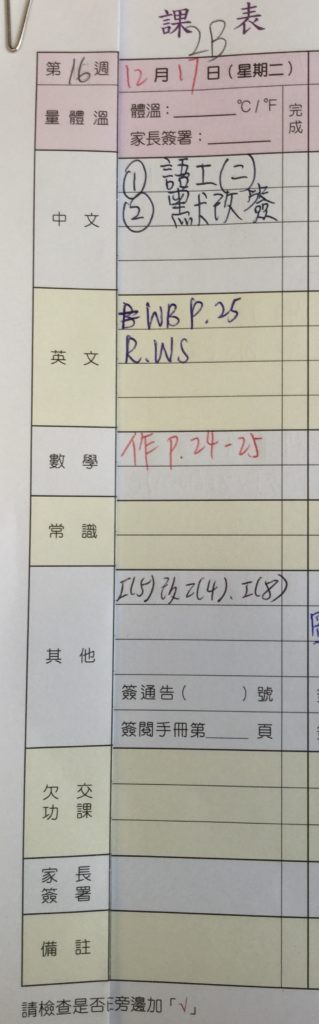 課表
2B
第16週 12月17日(星期二)
量體溫 體溫：______°C/°F 完成
家長簽署：______
中文 ① 語工(二)
② 默改簽
英文 WB P.25
R.WS
數學 作 P.24-25
常識
其他 I(5)改I(4)、I(8)
簽通告( )號
簽閱手冊第____頁
欠交功課
家長簽署
備註
請檢查是否 旁邊加「√」